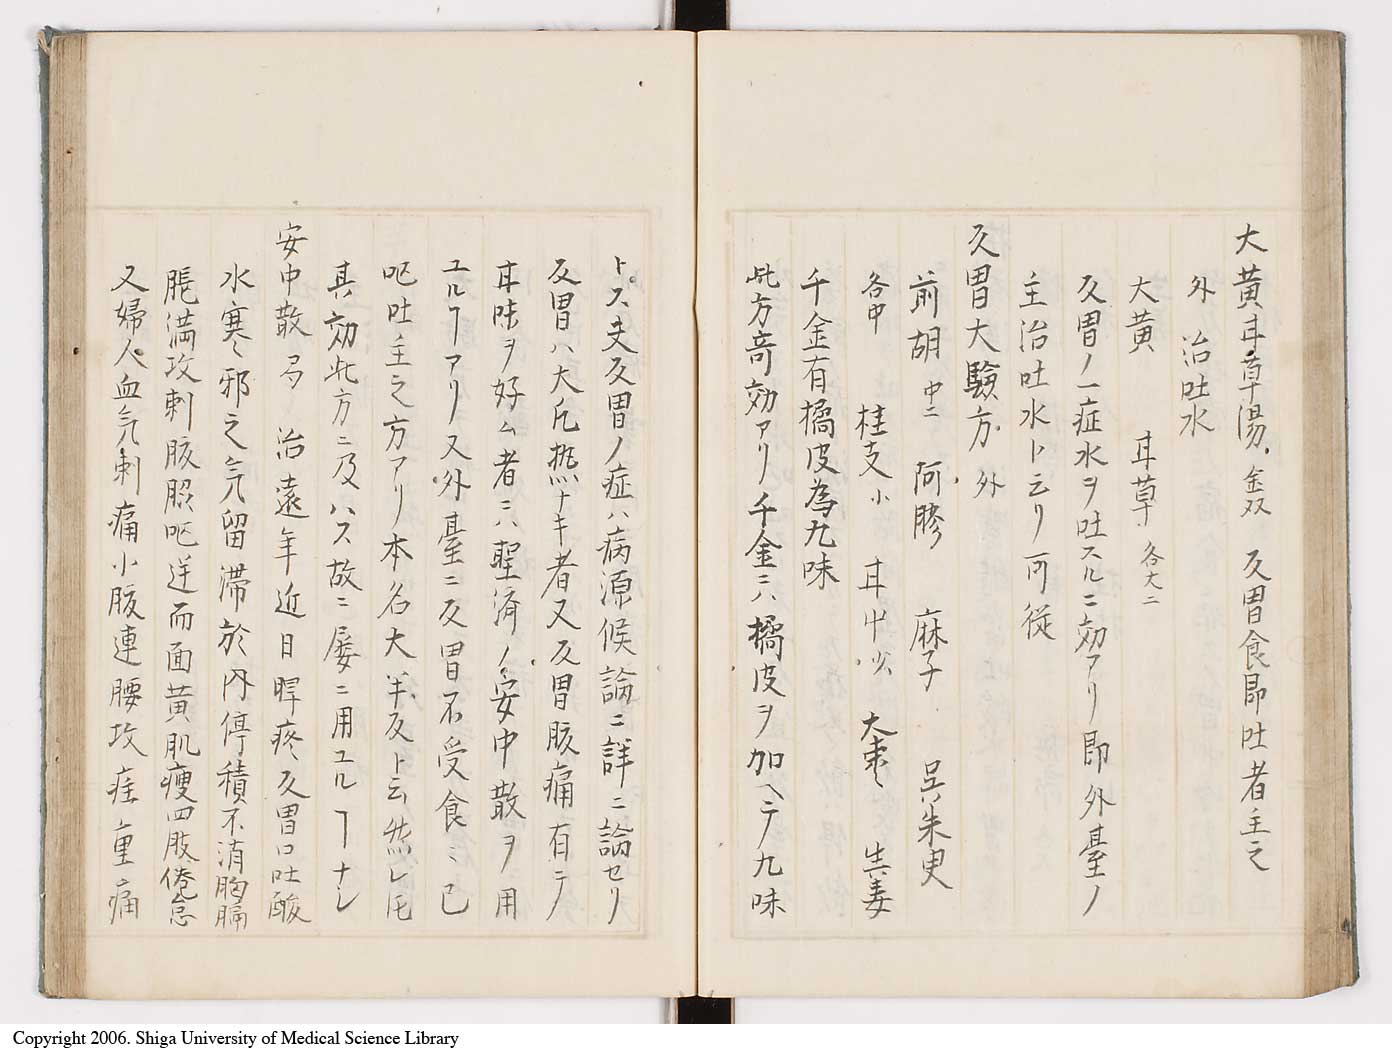 大黄甘草湯 金双 反胃食即吐者主之
外 治吐水
大黄 甘草 各大二
反胃ノ一症水ヲ吐スルニ効アリ即外臺ノ
主治吐水ト云リ可從
反胃大驗方 外
前胡 中二 阿膠 麻子 呉朱臾
各中 桂支 小 甘中 少 大棗 生姜
千金有橘皮為九味
此方竒効アリ千金ニハ橘皮ヲ加ヘテ九味
トス夫反胃ノ症ハ病源候論ニ詳ニ論セリ
反胃ハ大凡熱ナキ者又反胃腹痛有テ
甘味ヲ好ム者ニハ聖済ノ安中散ヲ用
ユルヿアリ又外臺ニ反胃不受食〻已
嘔吐主之方アリ本名大半反ト云然レ𪜈
其効此方ニ及ハス故ニ屡ニ用ユルヿナシ
安中散 局 治遠年近日脾疼反胃口吐酸
水寒〻邪之気留滞於内停積不消胸膈
脹満攻刺腹脇嘔逆而面黄肌痩四肢倦怠
又婦人血気刺痛小腹連腰攻疰重痛
Copyright 2006. Shiga University of Medical Science Library